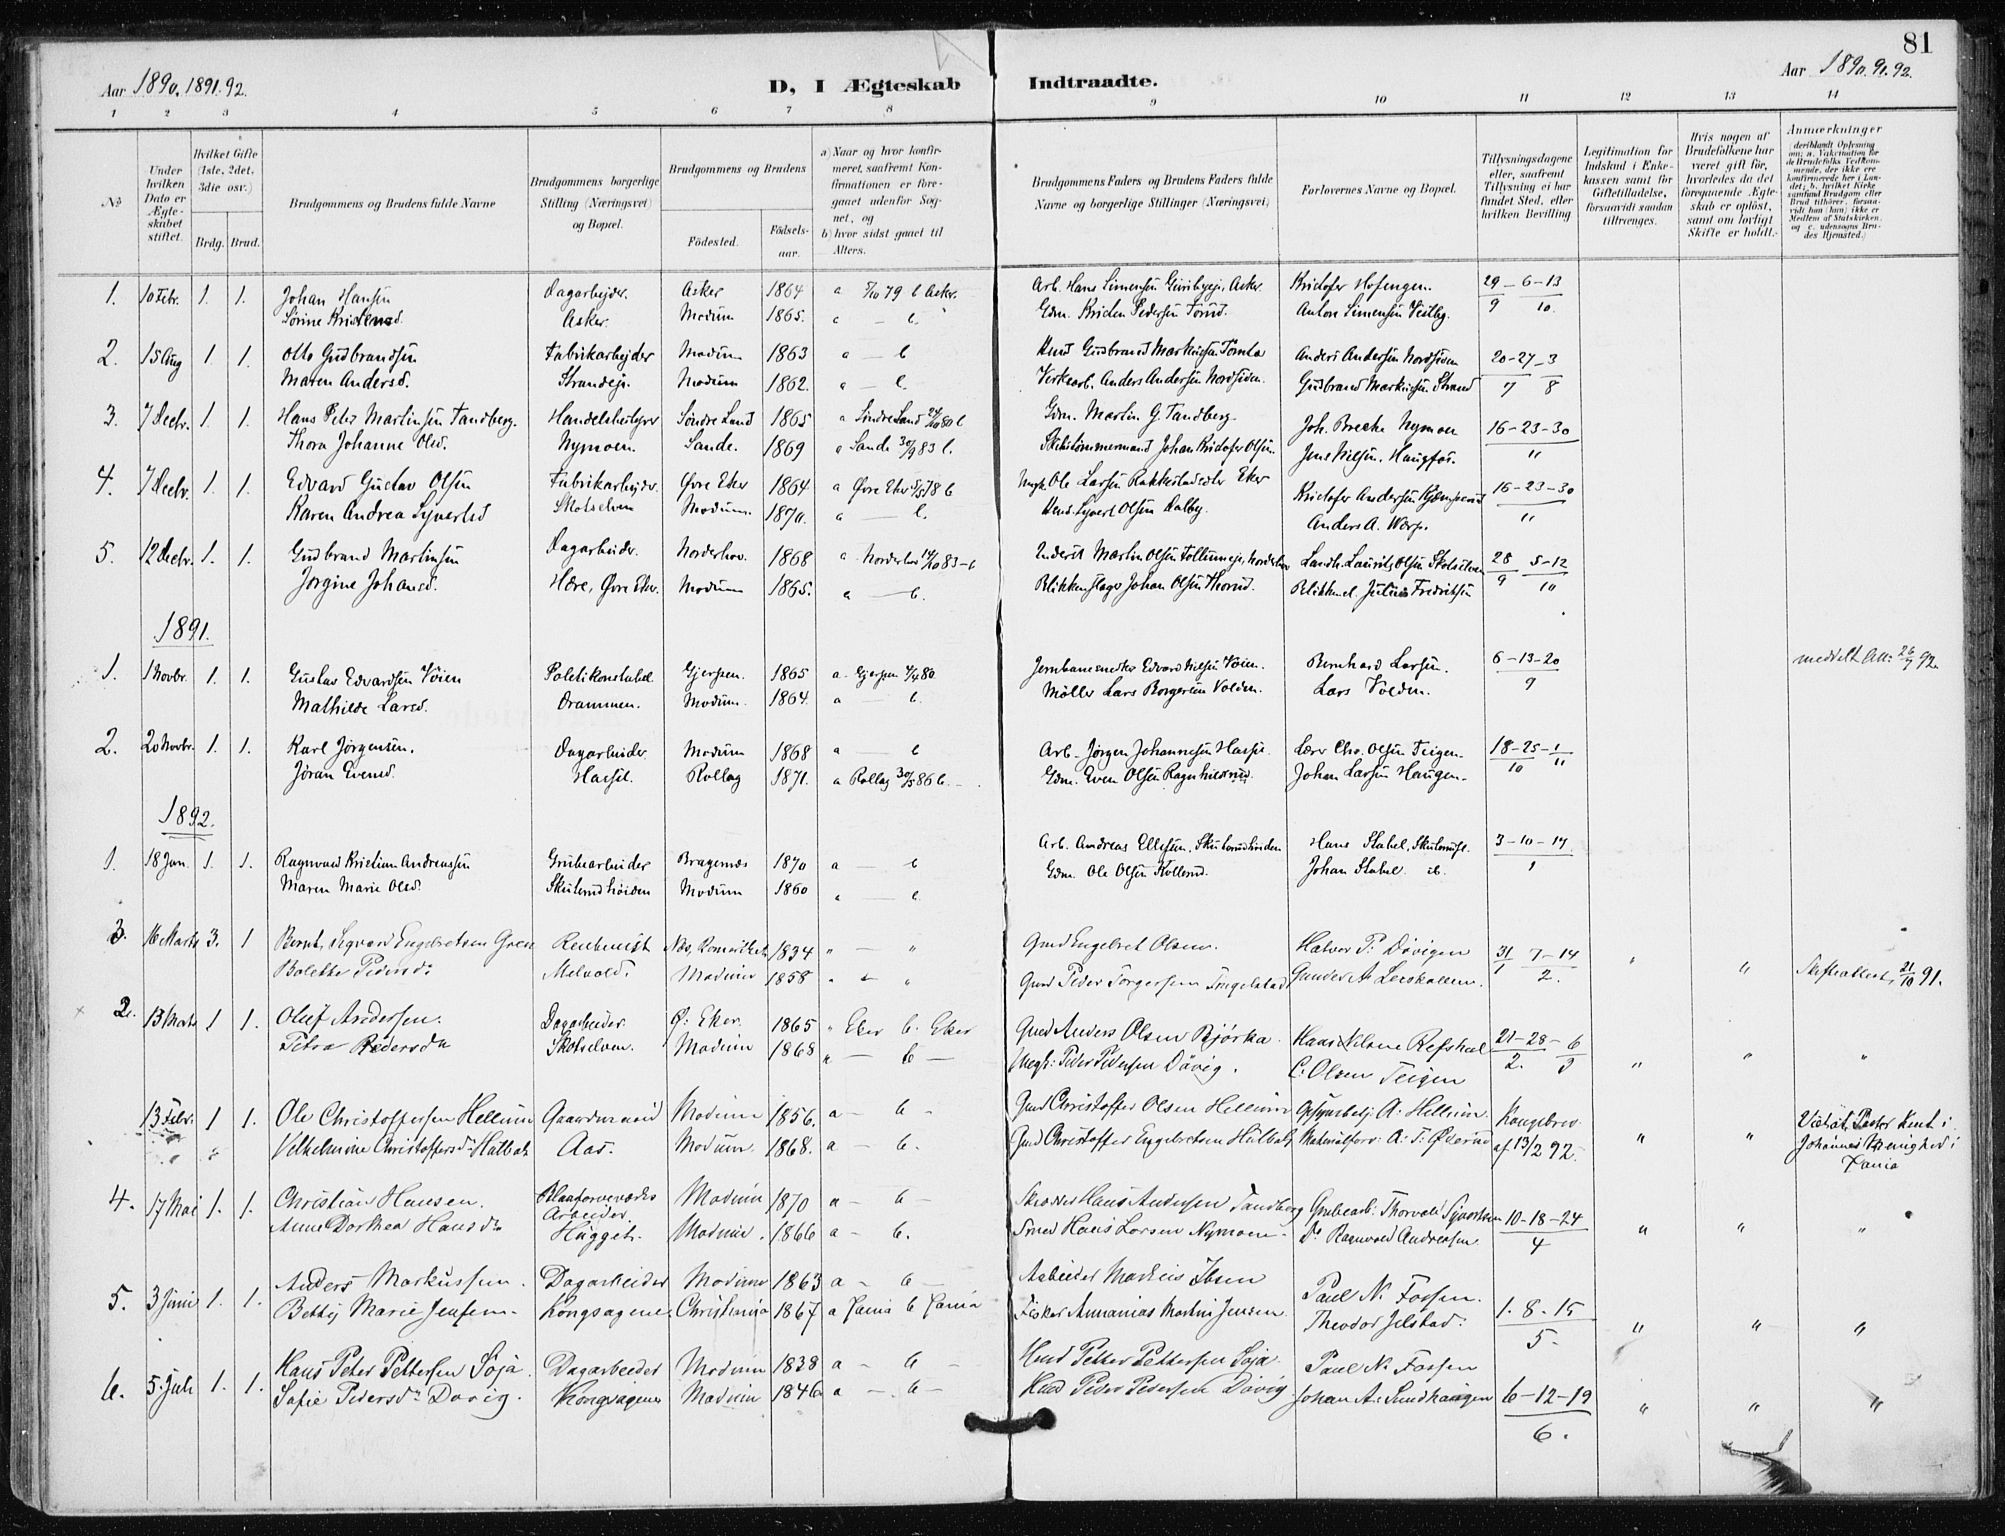 81
Aar 1890, 1891. 92.
D, I Ægteskab Indtraadte.
Aar 1890. 91. 92.
1 2 3 4 5 6 7 8 9 10 11 12 13 14
№
Under hvilken Dato er Ægteskabet stiftet.
Hvilket Gifte (1ste, 2det, 3die osv.)
Brdg. Brud.
Brudgommens og Brudens fulde Navne
Brudgommens borgerlige Stilling (Næringsvei) og Bopæl.
Brudgommens og Brudens
Fødested.
Fødselsaar.
a) Naar og hvor konfirmeret, saafremt Konfirmationen er foregaaet udenfor Sognet, og
b) hvor sidst gaaet til Alters.
Brudgommens Faders og Brudens Faders fulde Navne og borgerlige Stillinger (Næringsvei)
Forlovernes Navne og Bopæl.
Tillysningsdagene eller, saafremt Tillysning ei har fundet Sted, efter hvilken Bevilling
Legitimation for Indskud i Enkekassen samt for Giftetilladelse, forsaavidt saadan tiltrænges.
Hvis nogen af Brudefolkene har været gift før, hvorledes da det foregaaende Ægteskab er opløst, samt om lovligt Skifte er holdt.
Anmærkninger (deriblandt Oplysning om: a. Vakcination for de Brudefolks Vedkommende, der ikke ere konfirmerede her i Landet; b. hvilket Kirkesamfund Brudgom eller Brud tilhører, forsaavidt han (hun) ikke er Medlem af Statskirken, og c. udensogns Brudes Hjemsted.)
1. 10 Febr. 1. 1. Johan Hansen Dagarbejder. Asker 1864 a 5/10 79 b Asker. Arb. Hans Simensen Asker. Kristofer Hofengen. 29 – 6 – 13
Sørine Kristensd. Asker. Modum 1865. a – b. Gdm. Kristen Pedersen Anton Simensen Vestby. 9 10.
2. 15 Aug 1. 1. Otto Gudbrandsen Fabrikarbejder Modum 1863 a – b Husd Gudbrand Markusen Tomta Anders Andersen Nordsiden 20 – 27 – 3
Maren Andersd. Strandeje. Modum 1862. a – b. Verksarb. Anders Andersen Nordsiden. Gudbrand Markusen Strand 7 8
3. 7 Decbr. 1. 1. Hans Peter Martinsen Tandberg. Handelsbestyrer Søndre Land 1865 a Søndre Land 24/10 80 b Gdm. Martin G. Tandberg. Joh. Brecke Nymoen 16 – 23 – 30
Thora Johanne Olsd. Nymoen. Sande. 1869 a Sande 30/9 83 b. Skibstømmermand Johan Kristofer Olsen. Jens Nilsen. Haugfos. 11
4. 7 Decbr. 1. 1. Edvard Gustav Olsen Fabrikarbejder. Øvre Eker 1864 a Øvre Eker 5/5 78 b Ungk. Ole Larsen Rakkestadeeler Eker Kristofer Andersen Kjemperud 16 – 23 – 30
Karen Andrea Syvertsd Skotselven Modum. 1870. a – b. Husd. Syvert Olsen Dalby. Anders A. Werp. 11
5. 12 Decbr. 1. 1. Gudbrand Martinsen Dagarbeider. Norderhov. 1868 a. Norderhov 14/10 83 – b Inderst Martin Olsen Norderhov Landh. Laurits Olsen Skotselven 28 5 – 12
Jørgine Johansd. Hære, Øvre Eker. Modum 1865. a – b. Blikkenslager Johan Olsen Thorud. Blikkensl. Julius Fredriksen 9 10
1891.
1. 1 Novbr. 1. 1. Gustav Edvardsen Vøien Politikonstabel Gjerpen. 1865 a. Gjerpen 4/4 80 Jernbanemester Edvard Nilsen Vøien. Bernhard Larsen. 6 – 13 – 20 meddelt Att. 26/9 92.
Mathilde Larsd. Drammen. Modum. 1864. a – b. Møller Lars Borgersen Volden. Lars Volden. 9
2. 20 Novbr. 1. 1. Karl Jørgensen. Dagarbeider. Modum 1868 a – b Arb. Jørgen Johannesen Hassel Lærer Chr. Olsen Teigen. 18 – 25 – 1
Jøran Evensd. Hassel. Rollag 1871. a Rollag 30/5 86 b. Gdm. Even Olsen Ragnhildrud. Johan Larsen Haugen. 10 11
1892.
1. 18 Jan. 1. 1. Ragnvald Kristian Andreassen Grubearbeider Bragernæs 1870 a – b Arb. Andreas Ellefsen. Skuterudlinden Hans Stabel. Skuterudfl. 3 – 10 – 17.
Maren Marie Olsd. Skuterudhøiden Modum 1860 a – b Gdm. Ole Olsen Kollerud. Johan Stabel ib. 1
3. 16 Marts 3. 1 Bernt Sigvard Engebretsen Rentenist Næs, Romerike 1834 " – " Gmd Engebret Olsen. Halvor P. Døvigen 31/1 7 – 14
Bolette Pedersd. Melvold. Modum 1858 " – " Gmd Peder Torgersen Ingelstad Gunder A. Lerskallen. 2. " " Skifteattest 21/10 91.
2. 13 Marts 1 1. Oluf Andersen. Dagarbeider. Ø. Eker. 1865 " Eker b. Eker Gmd Anders Olsen Bjørka. Hans Nilsen Refsdal 21 – 28 – 6
Petra Pedersdr Skotselven. Modum 1868 a – b – Ungk. Peder Pedersen Døvig. C. Olsen Teigen 2. 3 " " "
13 Febr. 1 1. Ole Christoffersen Hellum Gaardmand Modum 1856. a – b – Gmd Christoffer Olsen Hellum Opsynsbetj A. Hellum. Kongebrev Viet af Pastor Kent i
" " Vilhelmine Christoffersd. Hulbak Aas. Modum. 1868. a – b. Gmd Christoffer Engebretsen Hulbak Materialforv. A. T. Østerud af 13/2 92. " " Johannes Menighed i Xania
4. 17 Mai 1. 1. Christian Hansen. Blaafarveværks Arbeider. Modum 1870 a – b – Skrædder Hans Andersen Tandberg Grubearb. Thorvald Syvertsen 10 – 18 – 24
Anne Dorthea Hansdr Hugget. Modum. 1866 a – b. Smed Hans Larsen Nymoen. Do Ragnvald Andreasen 4 " " "
5. 3 Juni 1. 1. Anders Markussen. Dagarbeider Modum 1863 a – b – Arbeider Markus Ibsen Paul N. Fossen.
Betty Marie Jensen. Kongsagene. Christiania 1867 a Xania b Xania Fisker Annanias Martin Jensen Theodor Jelstad. 1. 8. 15 5. " " "
6. 5. Juli 1. 1. Hans Peter Pettersen Søja Dagarbeider Modum 1838 a – b – Husd Petter Pettersen Søja. Paul N. Fossen
Sofie Pedersdr Døvig. Kongsagene Modum 1846 a – b – Husd Peder Pedersen Døvig. Johan A. Sundhaugen 6 – 12 – 19 6. " " "